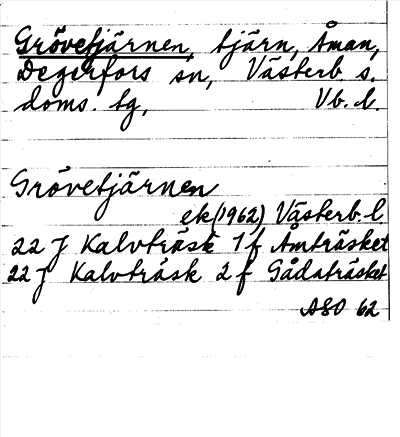 Grövetjärnen, tjärn, Åman,
Degerfors sn, Västerb s.
doms. tg, Vb. l.
Grövetjärnen
ek (1962) Västerb. l
22 J Kalvträsk 1 f Åmträsket
22 J Kalvträsk 2 f Gådaträsket
ASO 62